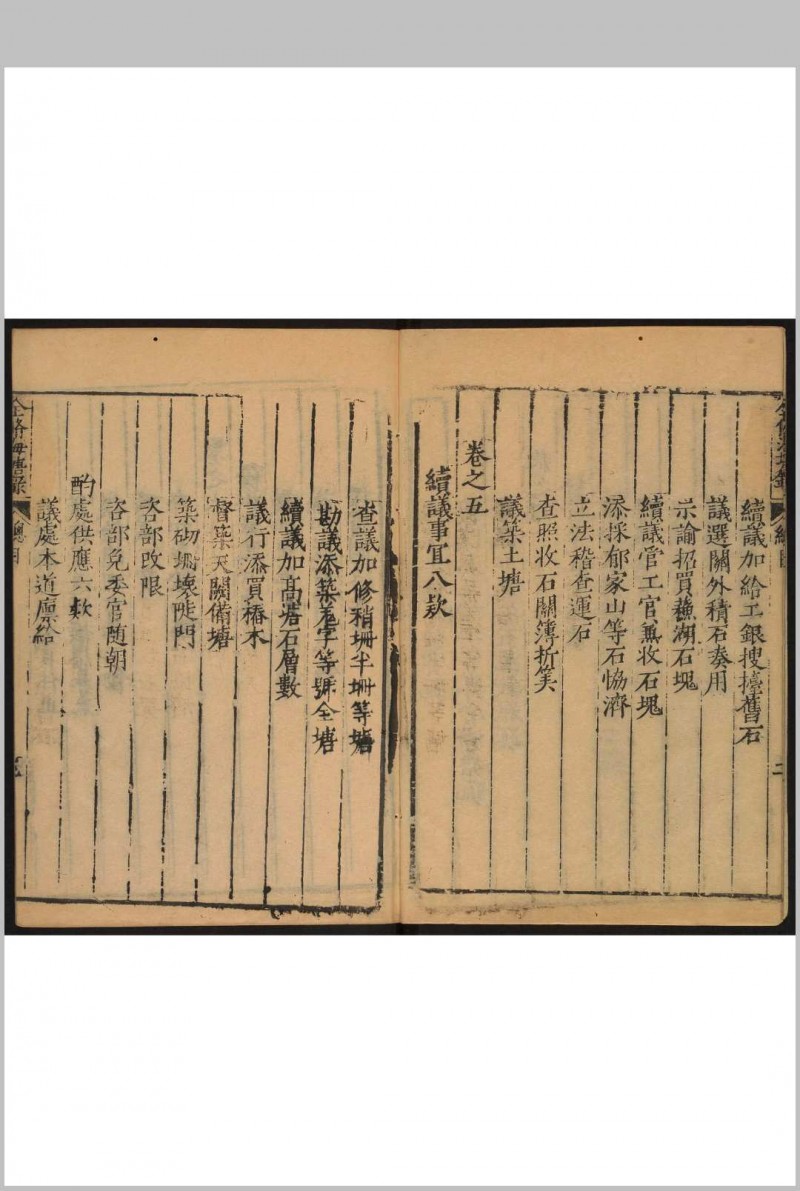 續議加給工銀搜擡舊石
議選關外積石奏用
示諭招買蘸湖石塊
續議官工官兼收石塊
添採郁家山等石恊濟
立法稽查運石
查照收石關簿折筭
議築土塘
卷之五
續議事宜八欵
查議加修稍坍半坍等塘
勘議添築羗字等號全塘
續議加髙塘石層數
議行添買樁木
督築天關備塘
築砌塌壊陡門
咨部改限
咨部免委官随朝
酌處供應六欵
議處本道廪給
總目